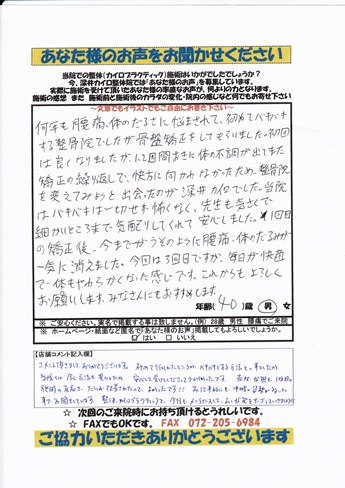 あなた様のお声をお聞かせください
当院での整体(カイロプラクティック)施術はいかがでしたでしょうか?
今、深井カイロ整体院では「あなた様のお声」を募集しています。
実際に施術を受けて頂いたあなた様の率直なお声が、何よりの力となります。
施術の感想 また 施術前と施術後のカラダの変化・院内の感じなど何でもお寄せ下さい
～文章でもイラストでもご自由にお書き下さい～
何年も腰痛、体のだるさに悩まされて、初めてバキバキ
する整骨院でしたが骨盤矯正をしてもらいました。初回
は良くなりましたが、に2週間おきに体の不調が出てまた
矯正の繰り返しで、快方に向かわなかったため、整骨院
を変えてみようと出会ったのが深井カイロでした。当院
はバキバキは一切せず怖くなく、先生も気さくで
細かいところまで気配りしてくれて安心しました。1回目
の矯正後、今までがうそのように腰痛、体のだるみが
一気に消えました。今回は3回目ですが、毎日が快適
で体もやわらかくなった感じです。これからもよろしく
お願いします。みなさんにもおすすめします。
年齢(40)歳 男 女
※ ご安心ください。実名で掲載する事は致しません。(例) 28歳 男性 腰痛でご来院
※ ホームページ・紙面など匿名で「あなた様のお声」掲載してもよろしいでしょうか。
☑はい □いいえ
【店舗コメント記入欄】
☆ 次回のご来院時にお持ち頂けるとうれしいです。
☆ FAXでもOKです。 FAX 072-205-6984
ご協力いただきありがとうございます